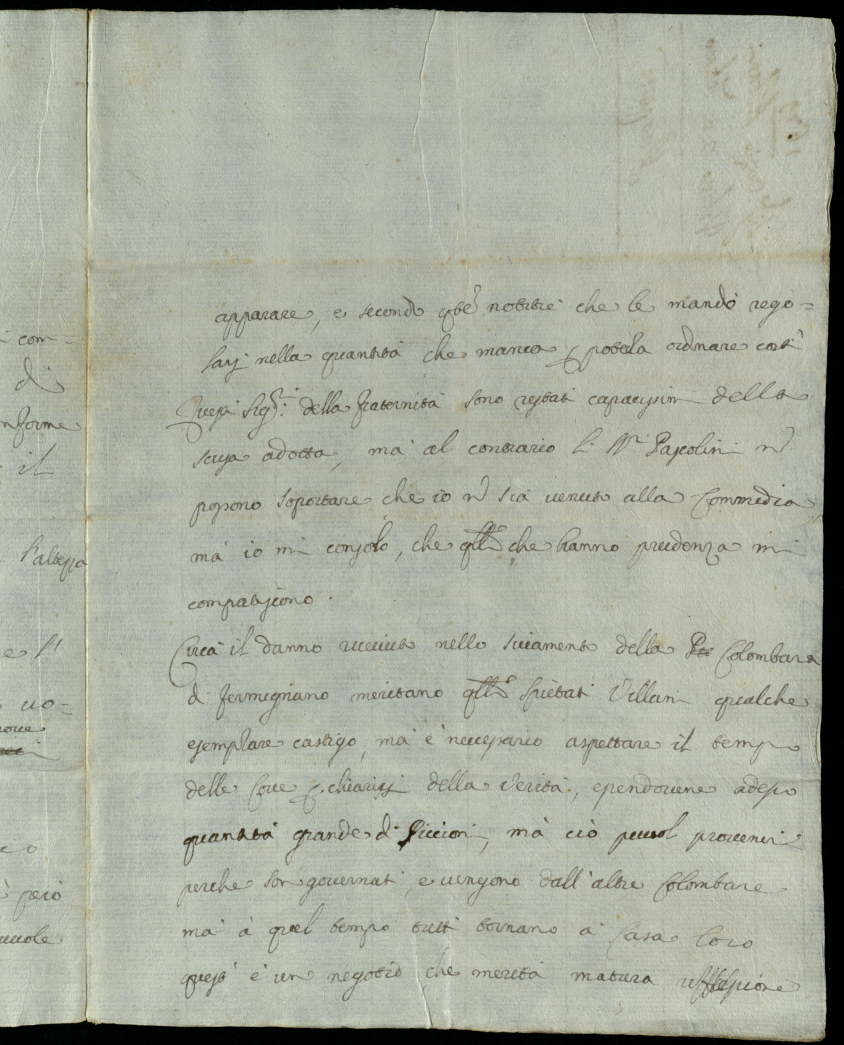 com=
di
nforme
il
l'altezza
e l'
uo=
però
apparare, e secondo q.te notitie che le mandò rego=
larsi nella quantità che manca p poterla ordnare così
Questi Sig.ri della fraternità sono restati capacissimi della
scusa adotta, mà al contrario li SS.ri Pascolini n
possono soportare che io n sia venuto alla Commedia
mà io mi consolo, che q.lli che hanno prudenza mi
compatiscono.
Circa il danno ricevuto nello sviamento della Colombara
di fermignano meritano q.lli spietati Villani qualche
esemplare castigo, mà è necessario aspettare il tempo
delle Cove p chiarirsi della Verità, essendovene adesso
quantità grande di Piccioni, mà ciò puol provenire
perche son governati, e vengono dall'altre Colombare
mà à quel tempo tutti tornano à Casa loro
questo è un negotio che merità matura riflessione